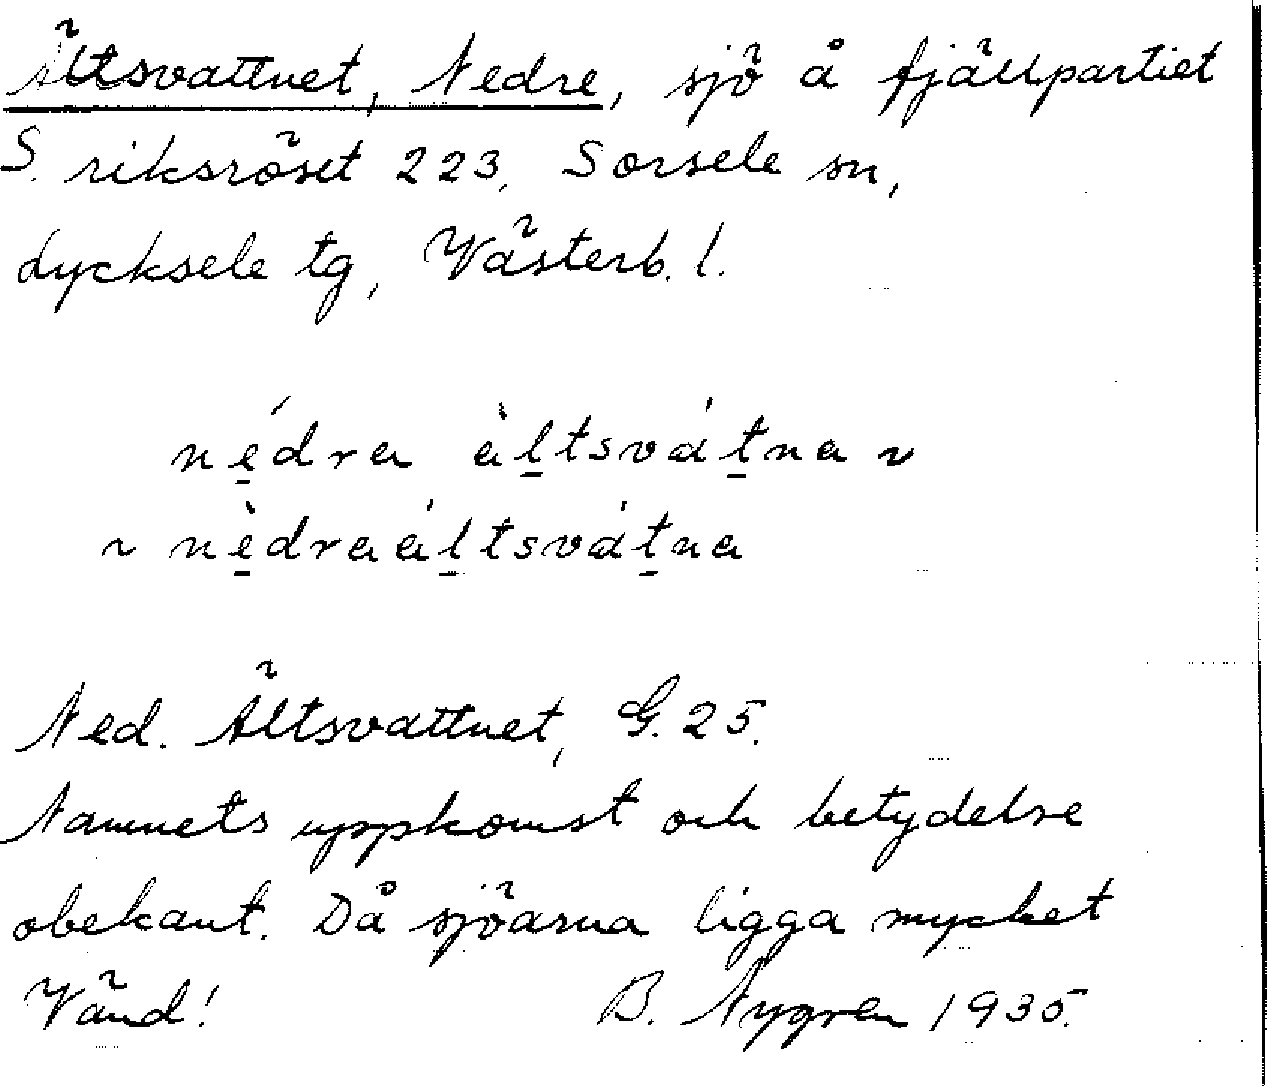 Ältsvattnet, Nedre, sjö å fjällpartiet
S. riksröset 223, Sorsele sn,
Lycksele tg, Västerb. l.
nẹ́dra àl̠tsvát̠na ~
~ nẹ̀draál̠tsvát̠na
Ned. Ältsvattnet, G. 25.
Namnets uppkomst och betydelse
obekant. Då sjöarna ligga mycket
Vänd! B. Nygren 1935.